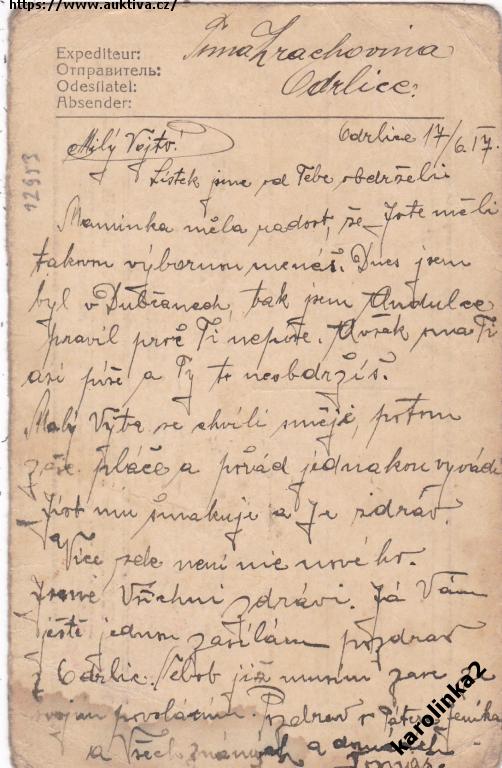 https://www.auktiva.cz/
Expediteur:
Отправитель:
Odesílatel:
Absender:
Zrachovina
Odrlice.
12953
Milý Vojto!
Odrlice 17/6.17.
Lístek jsme od Tebe obdrželi
Maminka měla radost, že Jste měli
takovou výbornou menáš. Dnes jsem
byl v Dubčanech, tak jsem Andulce
pravil proč Ti nepíše. Avšak ona Ti
asi píše a Ty to neobdržíš.
Malý Výta se chvíli směje, potom
zase pláče a pořád jednakou vyvádí
Jíst mu šmakuje a Je zdráv.
Více zde není nic nového.
Jsme Všichni zdrávi. Já Vám
ještě jednou zasílám pozdrav
z Odrlic. Neb již musím zase
svojim povoláním. Pozdrav
a Všech známých a
karolinka2